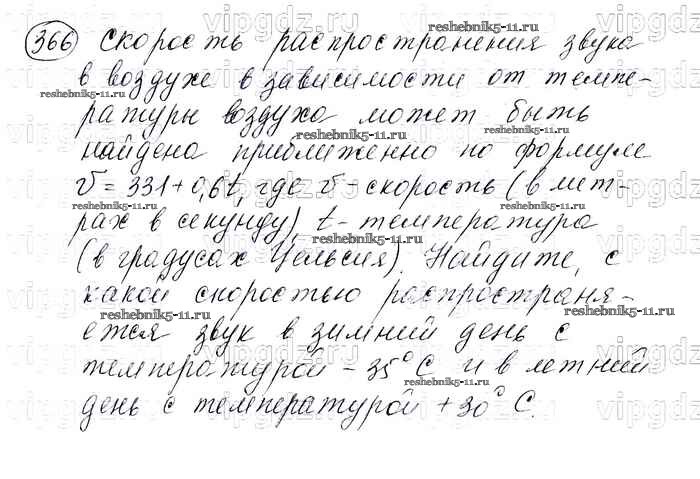 366 Скорость распространения звука
в воздухе в зависимости от темпе-
ратуры воздуха может быть
найдена приближенно по формуле
v = 331 + 0,6t, где v - скорость (в мет-
рах в секунду), t - температура
(в градусах Цельсия). Найдите, с
какой скоростью распространя-
ется звук в зимний день с
температурой - 35° С и в летний
день с температурой + 30° С.
reshebnik5-11.ru
reshebnik5-11.ru
reshebnik5-11.ru
reshebnik5-11.ru
reshebnik5-11.ru
reshebnik5-11.ru
reshebnik5-11.ru
reshebnik5-11.ru
reshebnik5-11.ru
reshebnik5-11.ru